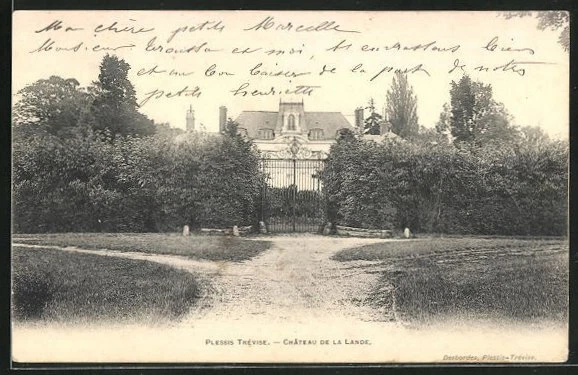 Ma chère petite Marcelle
Monsieur brassillon et moi, t'embrassons bien
et un bon baiser de la part de notre
petite henriette
PLESSIS TRÉVISE. — CHÂTEAU DE LA LANDE.
Desbordes, Plessis-Trévise.